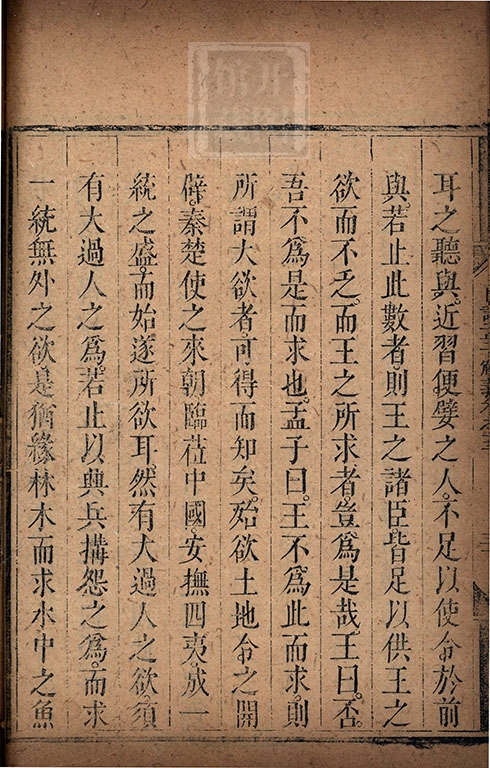 耳之聽與。近習便嬖之人。不足以使令於前
與。若止此數者。則王之諸臣皆足以供王之
欲而不乏。而王之所求者。豈爲是哉。王曰。否。
吾不爲是而求也。孟子曰。王不爲此而求。則
所謂大欲者。可得而知矣。殆欲土地命之開
僻。秦楚使之來朝。臨莅中國。安撫四夷。成一
統之盛。而始遂所欲耳。然有大過人之欲。須
有大過人之爲。若止以興兵搆怨之爲。而求
一統無外之欲。是猶緣林木。而求水中之魚